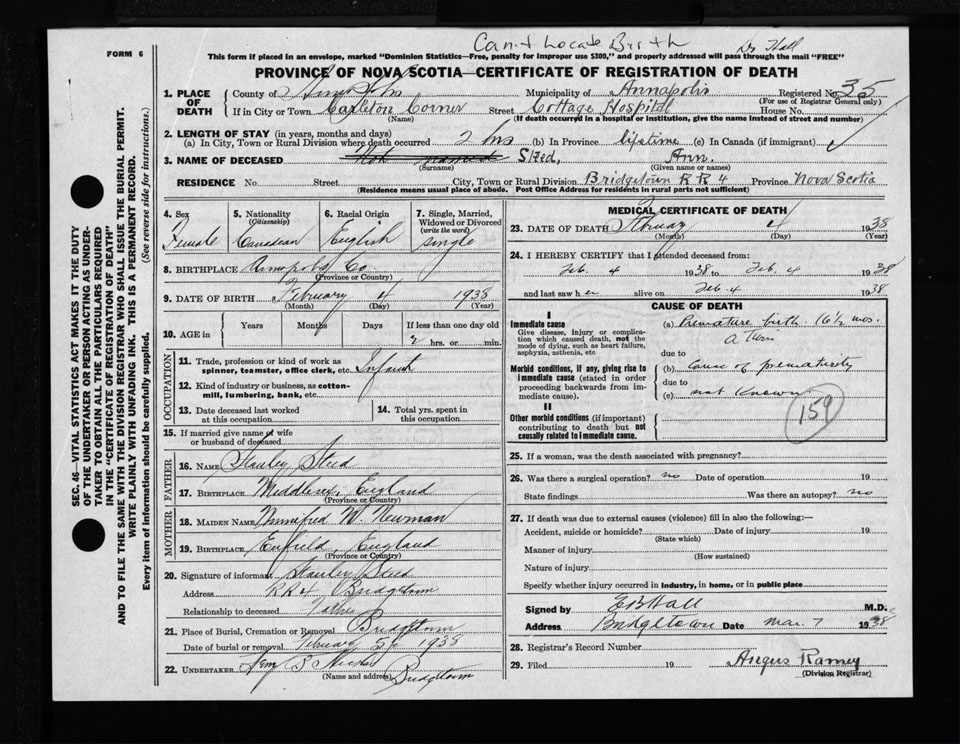 Can't Locate Birth
Dr Hall
FORM 6
This form if placed in an envelope, marked "Dominion Statistics—Free, penalty for improper use $300," and properly addressed will pass through the mail "FREE"
PROVINCE OF NOVA SCOTIA—CERTIFICATE OF REGISTRATION OF DEATH
1. PLACE OF DEATH County of Annapolis Municipality of Annapolis Registered No. 35
(For use of Registrar General only)
If in City or Town Carleton Corner Street Cottage Hospital House No.
(Name) (If death occurred in a hospital or institution, give the name instead of street and number)
2. LENGTH OF STAY (in years, months and days)
(a) In City, Town or Rural Division where death occurred 2 hrs (b) In Province lifetime (c) In Canada (if immigrant)
3. NAME OF DECEASED Not named Steed, Ann.
(Surname) (Given name or names)
RESIDENCE No. Street City, Town or Rural Division Bridgetown R R 4 Province Nova Scotia
(Residence means usual place of abode. Post Office Address for residents in rural parts not sufficient)
SEC. 46—VITAL STATISTICS ACT MAKES IT THE DUTY
OF THE UNDERTAKER OR PERSON ACTING AS UNDER-
TAKER TO OBTAIN ALL THE PARTICULARS REQUIRED
IN THE "CERTIFICATE OF REGISTRATION OF DEATH"
AND TO FILE THE SAME WITH THE DIVISION REGISTRAR WHO SHALL ISSUE THE BURIAL PERMIT.
WRITE PLAINLY WITH UNFADING INK. THIS IS A PERMANENT RECORD.
Every item of information should be carefully supplied. (See reverse side for instructions.)
4. Sex Female
5. Nationality (Citizenship) Canadian
6. Racial Origin English
7. Single, Married, Widowed or Divorced (write the word) single
8. BIRTHPLACE Annapolis Co
(Province or Country)
9. DATE OF BIRTH February 4 1938
(Month) (Day) (Year)
10. AGE in Years Months Days If less than one day old
2 hrs. or min.
OCCUPATION
11. Trade, profession or kind of work as spinner, teamster, office clerk, etc. Infant
12. Kind of industry or business, as cotton-mill, lumbering, bank, etc.
13. Date deceased last worked at this occupation
14. Total yrs. spent in this occupation
15. If married give name of wife or husband of deceased
FATHER
16. NAME Stanley Steed
17. BIRTHPLACE Middlesex, England
(Province or Country)
MOTHER
18. MAIDEN NAME Winnifred W. Newman
19. BIRTHPLACE Enfield, England
(Province or Country)
20. Signature of informant Stanley Steed
Address RR4 Bridgetown
Relationship to deceased Father
21. Place of Burial, Cremation or Removal Bridgetown
Date of burial or removal February 5 1938
22. UNDERTAKER
(Name and address) Bridgetown
MEDICAL CERTIFICATE OF DEATH
23. DATE OF DEATH February 4 1938
(Month) (Day) (Year)
24. I HEREBY CERTIFY that I attended deceased from:
Feb. 4 1938 to Feb 4 1938
and last saw her alive on Feb 4 1938
CAUSE OF DEATH
I
Immediate cause (a) Premature birth. (6½ mos.
Give disease, injury, or complication which caused death, not the mode of dying, such as heart failure, asphyxia, asthenia, etc. a Twin
due to
Morbid conditions, if any, giving rise to immediate cause (stated in order proceeding backwards from immediate cause). (b) Cause of prematurity
due to
(c) not known
159
II
Other morbid conditions (if important) contributing to death but not causally related to immediate cause.
25. If a woman, was the death associated with pregnancy?
26. Was there a surgical operation? no Date of operation 19
State findings Was there an autopsy? no
27. If death was due to external causes (violence) fill in also the following:—
Accident, suicide or homicide? Date of injury 19
(State which)
Manner of injury
(How sustained)
Nature of injury
Specify whether injury occurred in industry, in home, or in public place
Signed by E B Hall M.D.
Address Bridgetown Date Mar. 7 1938
28. Registrar's Record Number
29. Filed 19 Angus Ramey
(Division Registrar)